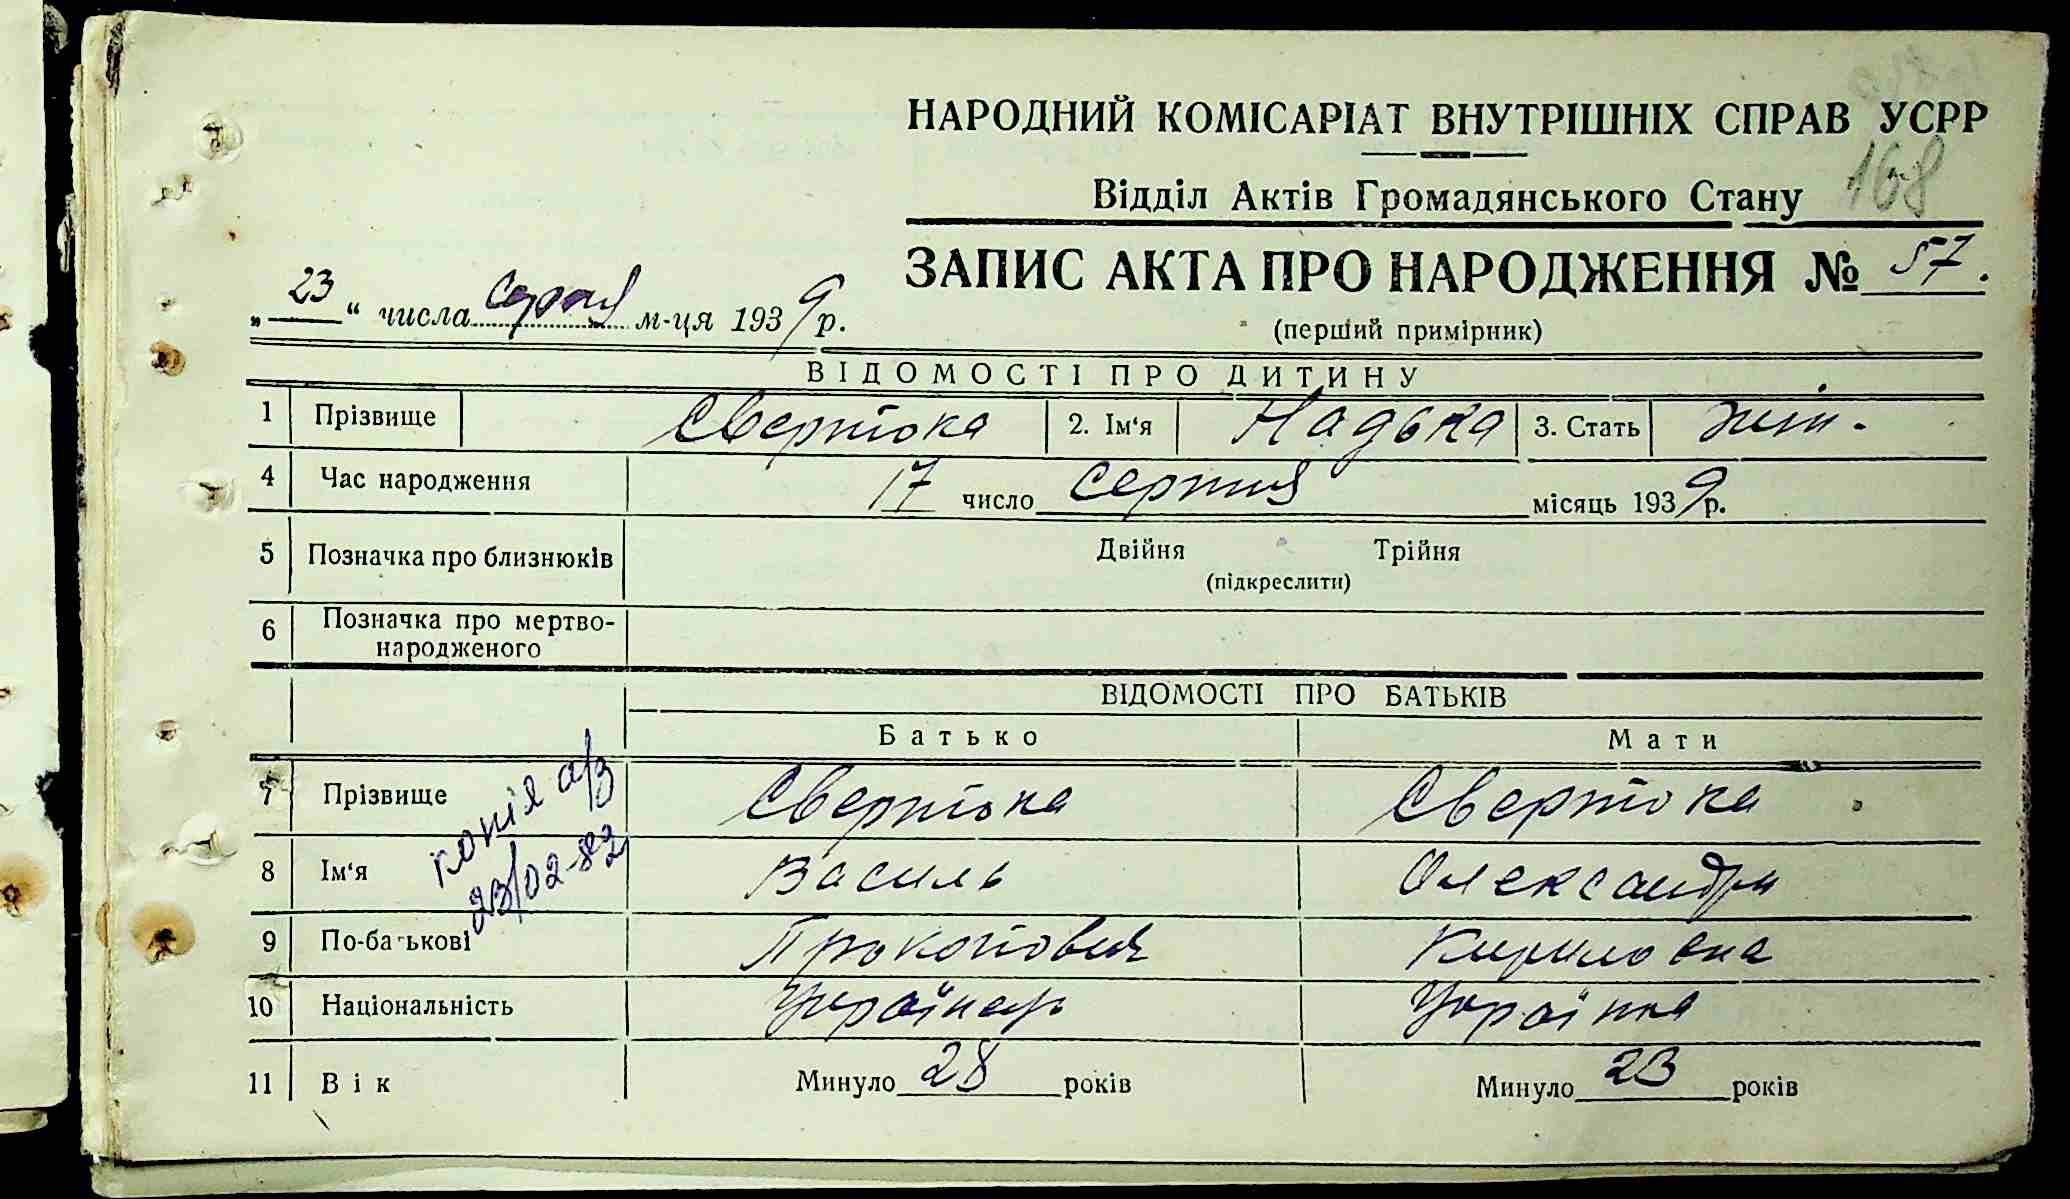 НАРОДНИЙ КОМІСАРІАТ ВНУТРІШНІХ СПРАВ УСРР
168
Відділ Актів Громадянського Стану
ЗАПИС АКТА ПРО НАРОДЖЕННЯ № 57.
„23“ числа серпня м-ця 1939 р.
(перший примірник)
ВІДОМОСТІ ПРО ДИТИНУ
1 Прізвище Свертока 2. Ім'я Надька 3. Стать жін.
4 Час народження 17 число серпня місяць 1939 р.
5 Позначка про близнюків Двійня Трійня
(підкреслити)
6 Позначка про мертво-
народженого
ВІДОМОСТІ ПРО БАТЬКІВ
Батько Мати
7 Прізвище Свертока Свертока
копія а/з
23/02-82
8 Ім'я Василь Олександра
9 По-батькові Прокопович Кириловна
10 Національність Українець Українка
11 Вік Минуло 28 років Минуло 23 років